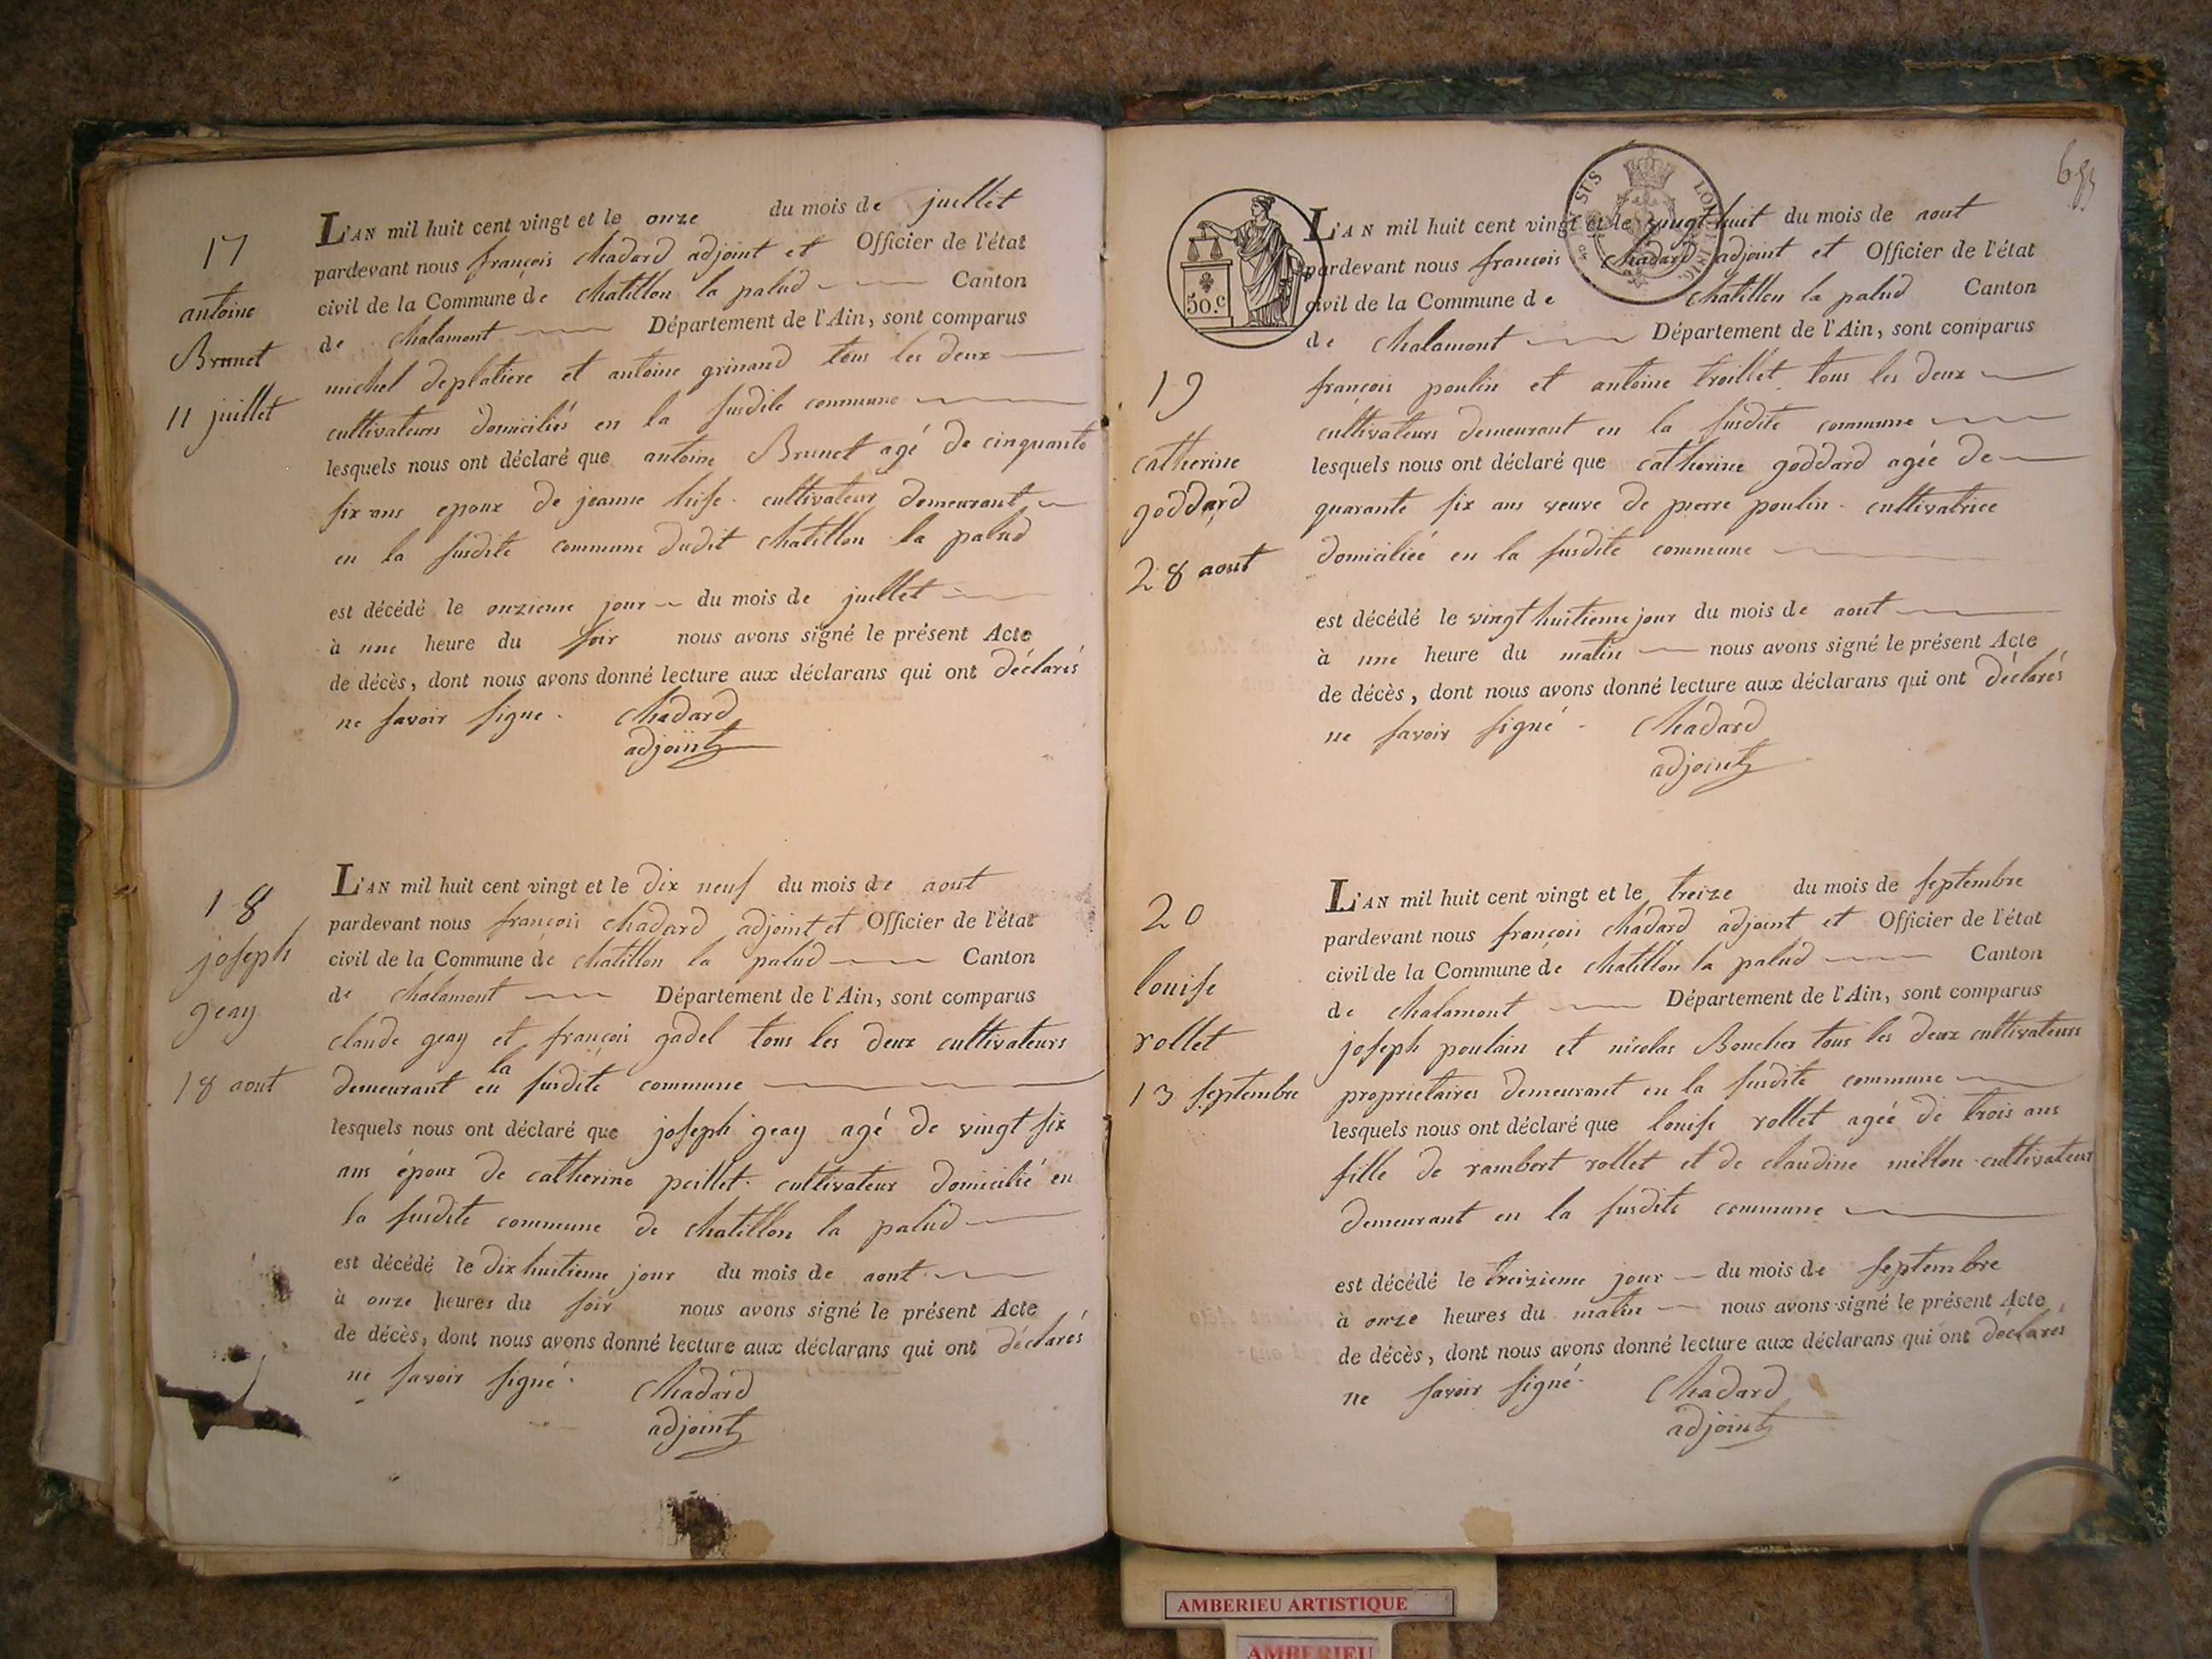 17
antoine
Brunet
11 juillet
L'AN mil huit cent vingt et le onze du mois de juillet
pardevant nous françois Chadard adjoint et Officier de l'état
civil de la Commune de Chatillon la palud Canton
de Chalamont Département de l'Ain, sont comparus
michel deplatiere et antoine grinand tous les deux
cultivateurs domiciliés en la susdite commune
lesquels nous ont déclaré que antoine Brunet agé de cinquante
six ans epoux de jeanne cultivateur demeurant
en la susdite commune dudit Chatillon la palud
est décédé le onzieme jour du mois de juillet
à une heure du soir nous avons signé le présent Acte
de décès, dont nous avons donné lecture aux déclarans qui ont déclarés
ne savoir signe. Chadard
adjoint
18
joseph
geay
18 aout
L'AN mil huit cent vingt et le dix neuf du mois de aout
pardevant nous françois Chadard adjoint et Officier de l'état
civil de la Commune de Chatillon la palud Canton
de Chalamont Département de l'Ain, sont comparus
claude geay et françois gadel tous les deux cultivateurs
demeurant en la susdite commune
lesquels nous ont déclaré que joseph geay agé de vingt six
ans époux de catherine peillet. cultivateur domicilié en
la susdite commune de Chatillon la palud
est décédé le dix huitieme jour du mois de aout
à onze heures du soir nous avons signé le présent Acte
de décès, dont nous avons donné lecture aux déclarans qui ont déclarés
ne savoir signé. Chadard
adjoint
50.c
19
catherine
goddard
28 aout
L'AN mil huit cent vingt et le vingt huit du mois de aout
pardevant nous françois Chadard adjoint et Officier de l'état
civil de la Commune de Chatillon la palud Canton
de Chalamont Département de l'Ain, sont comparus
françois poulin et antoine troillet tous les deux
cultivateurs demeurant en la susdite commune
lesquels nous ont déclaré que catherine goddard agée de
quarante six ans veuve de pierre poulin. cultivatrice
domiciliée en la susdite commune
est décédé le vingt huitieme jour du mois de aout
à une heure du matin nous avons signé le présent Acte
de décès, dont nous avons donné lecture aux déclarans qui ont déclarés
ne savoir signé. Chadard
adjoint
20
louise
rollet
13 septembre
L'AN mil huit cent vingt et le treize du mois de septembre
pardevant nous françois Chadard adjoint et Officier de l'état
civil de la Commune de Chatillon la palud Canton
de Chalamont Département de l'Ain, sont comparus
joseph poulain et nicolas Boucher tous les deux cultivateurs
proprietaires demeurant en la susdite commune
lesquels nous ont déclaré que louise rollet agée de trois ans
fille de rambert rollet et de claudine millon. cultivateur
demeurant en la susdite commune
est décédé le treizieme jour du mois de septembre
à onze heures du matin nous avons signé le présent Acte
de décès, dont nous avons donné lecture aux déclarans qui ont déclarés
ne savoir signé. Chadard
adjoint
AMBERIEU ARTISTIQUE
AMBERIEU